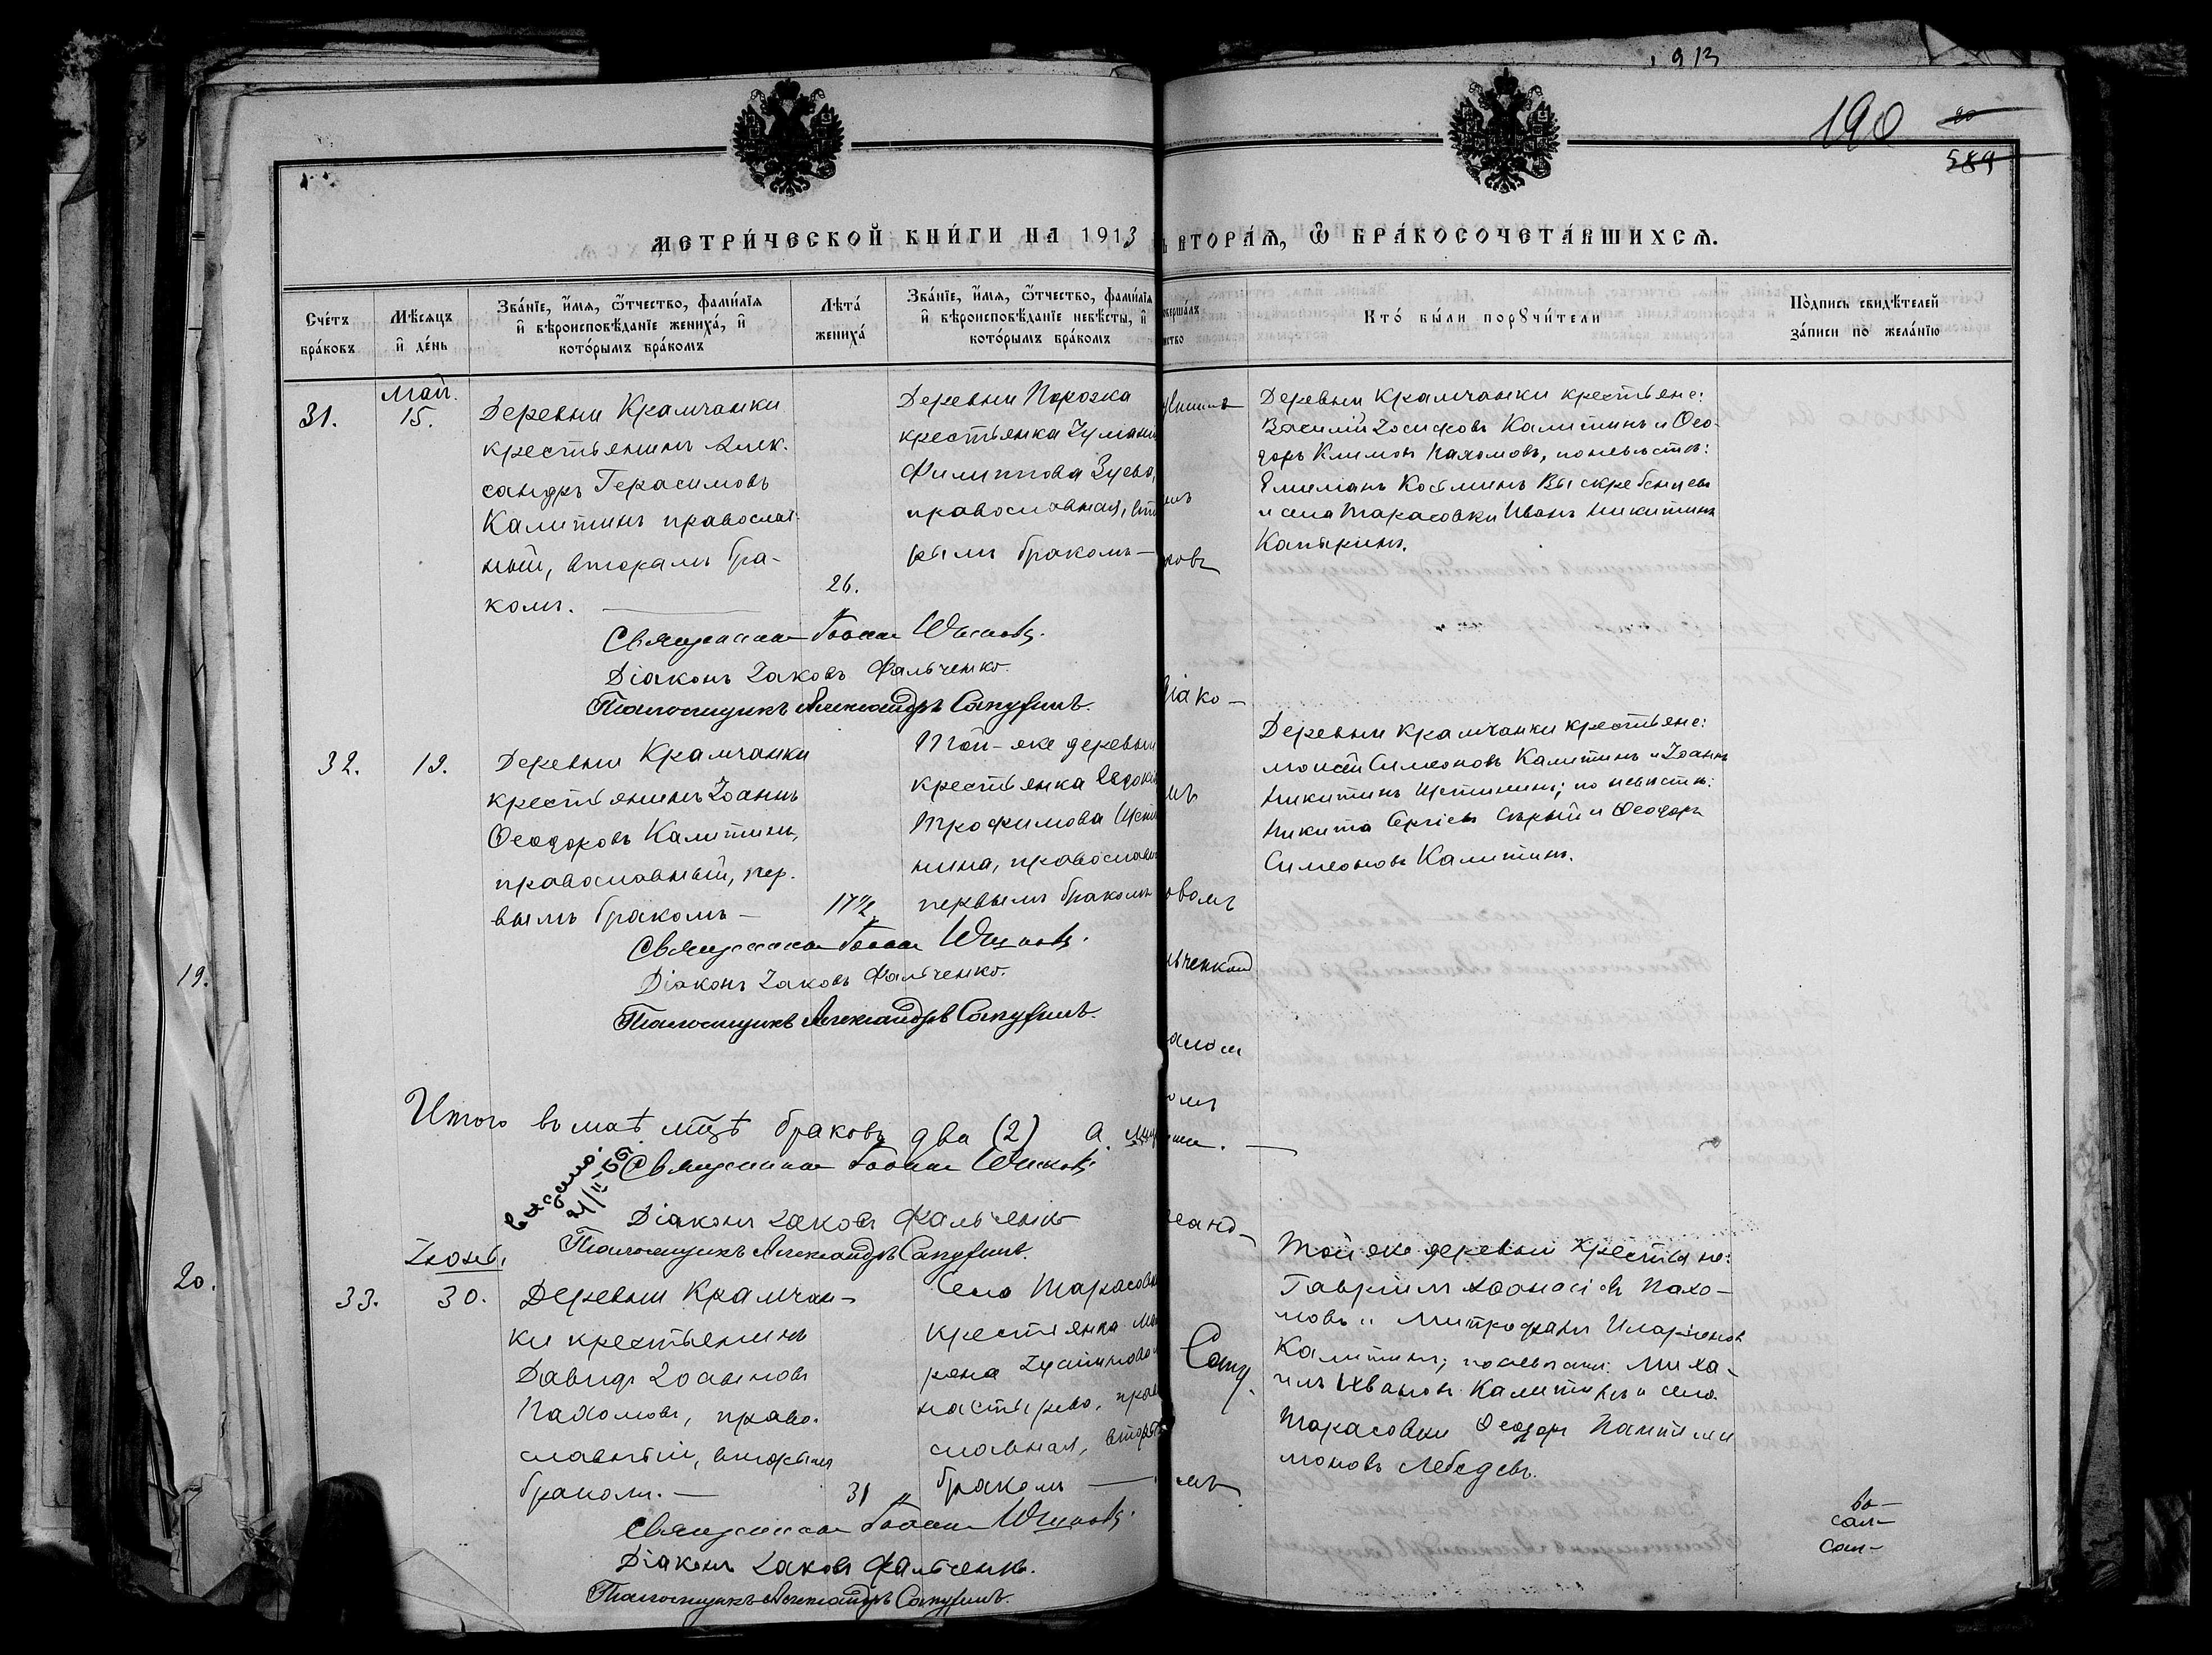 1913
190
20
589
МЕТРИ́ЧЕСКОЙ КНИ́ГИ НА 1913
ВТОРА́Я, Ѡ БРА́КОСОЧЕТА́ВШИХСЯ.
Сче́тъ бра́ковъ
Мѣ́сяцъ и҆ де́нь
Зва́нїе, и҆́мя, ѻ҆́тчество, фами́лїя
и҆ вѣроисповѣ́данїе жениха́, и҆
кото́рымъ бра́комъ
Лѣта̀
жениха́
Зва́нїе, и҆́мя, ѻ҆́тчество, фами́лїя
и҆ вѣроисповѣ́данїе невѣ́сты, и҆
кото́рымъ бра́комъ
Кто́ бы́ли порꙋчи́тели
По́дпись свидѣ́телей
за́писи по жела́нїю
31.
Май.
15.
Деревни Крамчанки
крестьянинъ Алек-
сандръ Герасимовъ
Калитинъ православ-
ный, вторымъ бра-
комъ.
26.
Деревни Порозка
крестьянка
Филиппова
православная,
рымъ бракомъ
Деревни Крамчанки крестьяне:
Василій Іосифовъ Калитинъ и Ѳео-
доръ Климов Пахомовъ, по невѣстѣ:
Косьминъ Выскребенцевъ
и села Тарасовки Иванъ Никитинъ
Священникъ Іоаннъ
Діаконъ Іаковъ Фальченко.
Псаломщикъ Александръ
32.
19.
Деревни Крамчанки
крестьянинъ Іоаннъ
Ѳеодоровъ Калитинъ,
православный, пер-
вымъ бракомъ
17½
Той-же деревни
крестьянка Евдокі
Трофимова Щети
нина, православн
первымъ бракомъ
Деревни Крамчанки крестьяне:
Моисей Симеоновъ Калитинъ и Іоаннъ
Никитинъ Щетининъ; по невѣстѣ:
Никита Сергіевъ Сѣрый и Ѳеодоръ
Симеоновъ Калитинъ.
Священникъ Іоаннъ
Діаконъ Іаковъ Фальченко.
Псаломщикъ Александръ
19.
Итого въ маѣ мцѣ браковъ два (2)
Священникъ Іоаннъ
Діаконъ Іаковъ Фальченко
Псаломщикъ Александръ
20.
Іюнь.
33.
30.
Деревни Крамчан-
ки крестьянинъ
Давидъ Іоанновъ
Пахомовъ, право-
славный, вторымъ
бракомъ.
31
Села Тарасовк
крестьянка Ма
рена
настырева, прав
славная, вторы
бракомъ
Той же деревни крестьяне:
Гавріилъ Аѳанасіевъ Пахо-
мовъ и Митрофанъ Иларіонов
Калитинъ; по невѣстѣ: Миха-
илъ Ивановъ Калитинъ и села
Тарасовки Ѳеодоръ Пантелеи
моновъ Лебедевъ.
Священникъ Іоаннъ
Діаконъ Іаковъ Фальченко.
Псаломщикъ Александръ